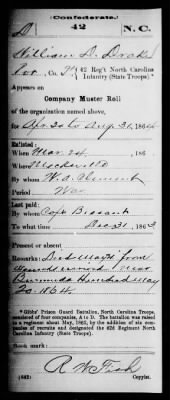 (Confederate.)
D 42 N.C.
William D. Drake
Pvt., Co. F, 42 Reg't North Carolina
Infantry (State Troops)*
Appears on
Company Muster Roll
of the organization named above,
for Apr 30 to Aug 31, 1864.
Enlisted:
When Mar 24, 186
Where Mocksville
By whom W. A. Clement
Period War
Last paid:
By whom Capt
To what time Dec 31, 1863
Present or absent
Remarks: Died May 21 from
wounds received near
Bermuda Hundred May
20. 1864.
*Gibbs' Prison Guard Battalion, North Carolina Troops,
consisted of four companies, A to D. The battalion was raised
to a regiment about May, 1862, by the addition of six companies
of recruits and designated the 42d Regiment North Carolina
Infantry (State Troops).
Book mark:
R W Fish
(642) Copyist.